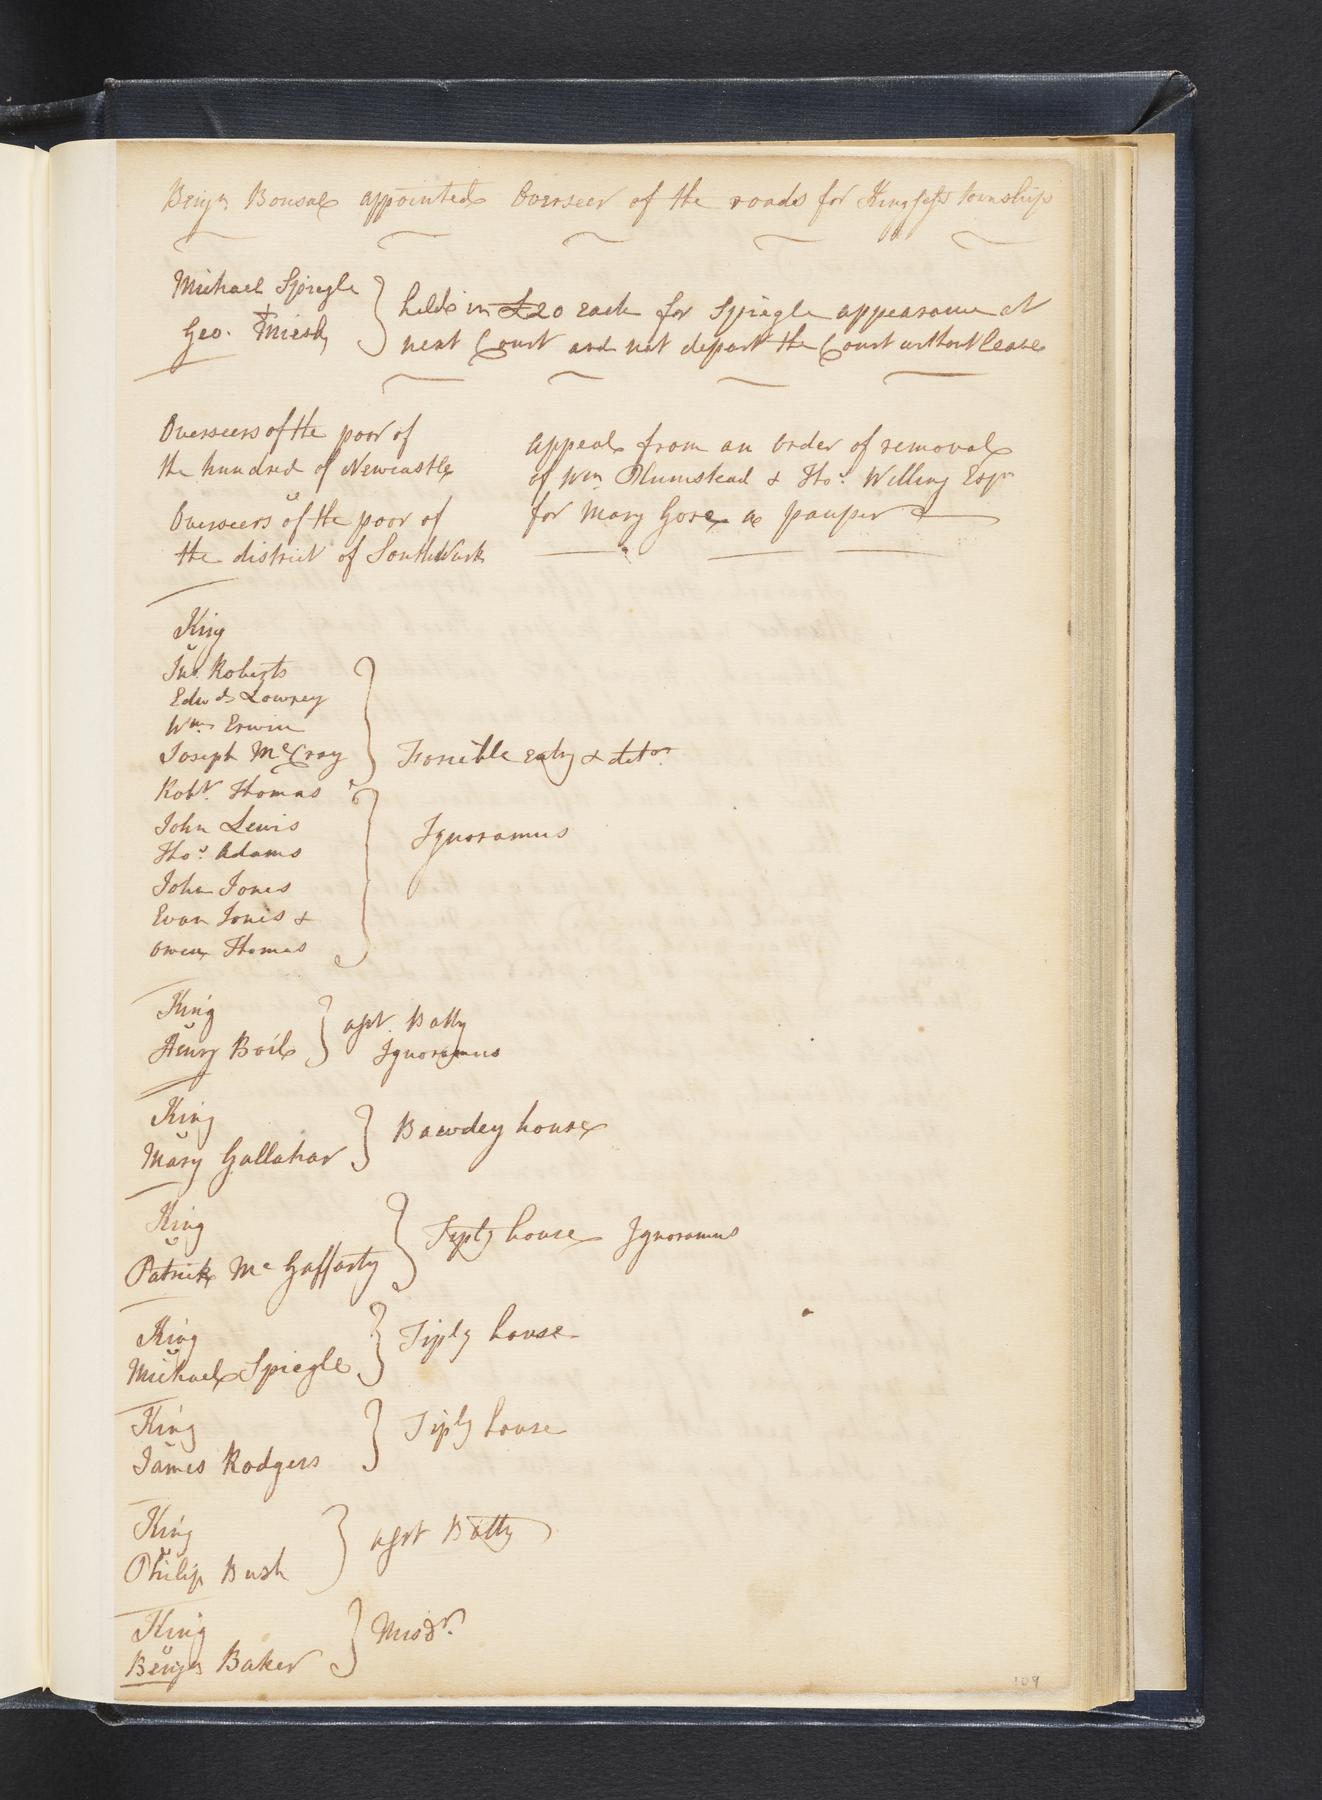 Benjn Bonsal appointed Overseer of the roads for Kingsess township
Michael Spiegle
Geo.
held in £20 each for Spiegle appearance at
next Court and not depart the Court without leave
Overseers of the poor of
the hundred of Newcastle
v
Overseers of the poor of
the district of Southwark
appeal from an order of removal
of Wm Plumstead & Thos Willing Esqr
for Mary Gore a pauper
King
v
Jno. Roberts
Edwd Lowrey
Wm Erwin
Joseph McCray
Robt. Thomas
John Lewis
Thos Adams
John Jones
Evan Jones &
Owen Thomas
Forcible entry & detr.
Ignoramus
King
v
Henry Boils
asst. Batty
Ignoramus
King
v
Mary Gallahar
Bawdey house
King
v
Patrick Mc Gafferty
Tiplg house Ignoramus
King
v
Michael Spiegle
Tiplg house
King
v
James Rodgers
Tiplg house
King
v
Philip Bush
asst Batty
King
v
Benjn Baker
Misdr.
109